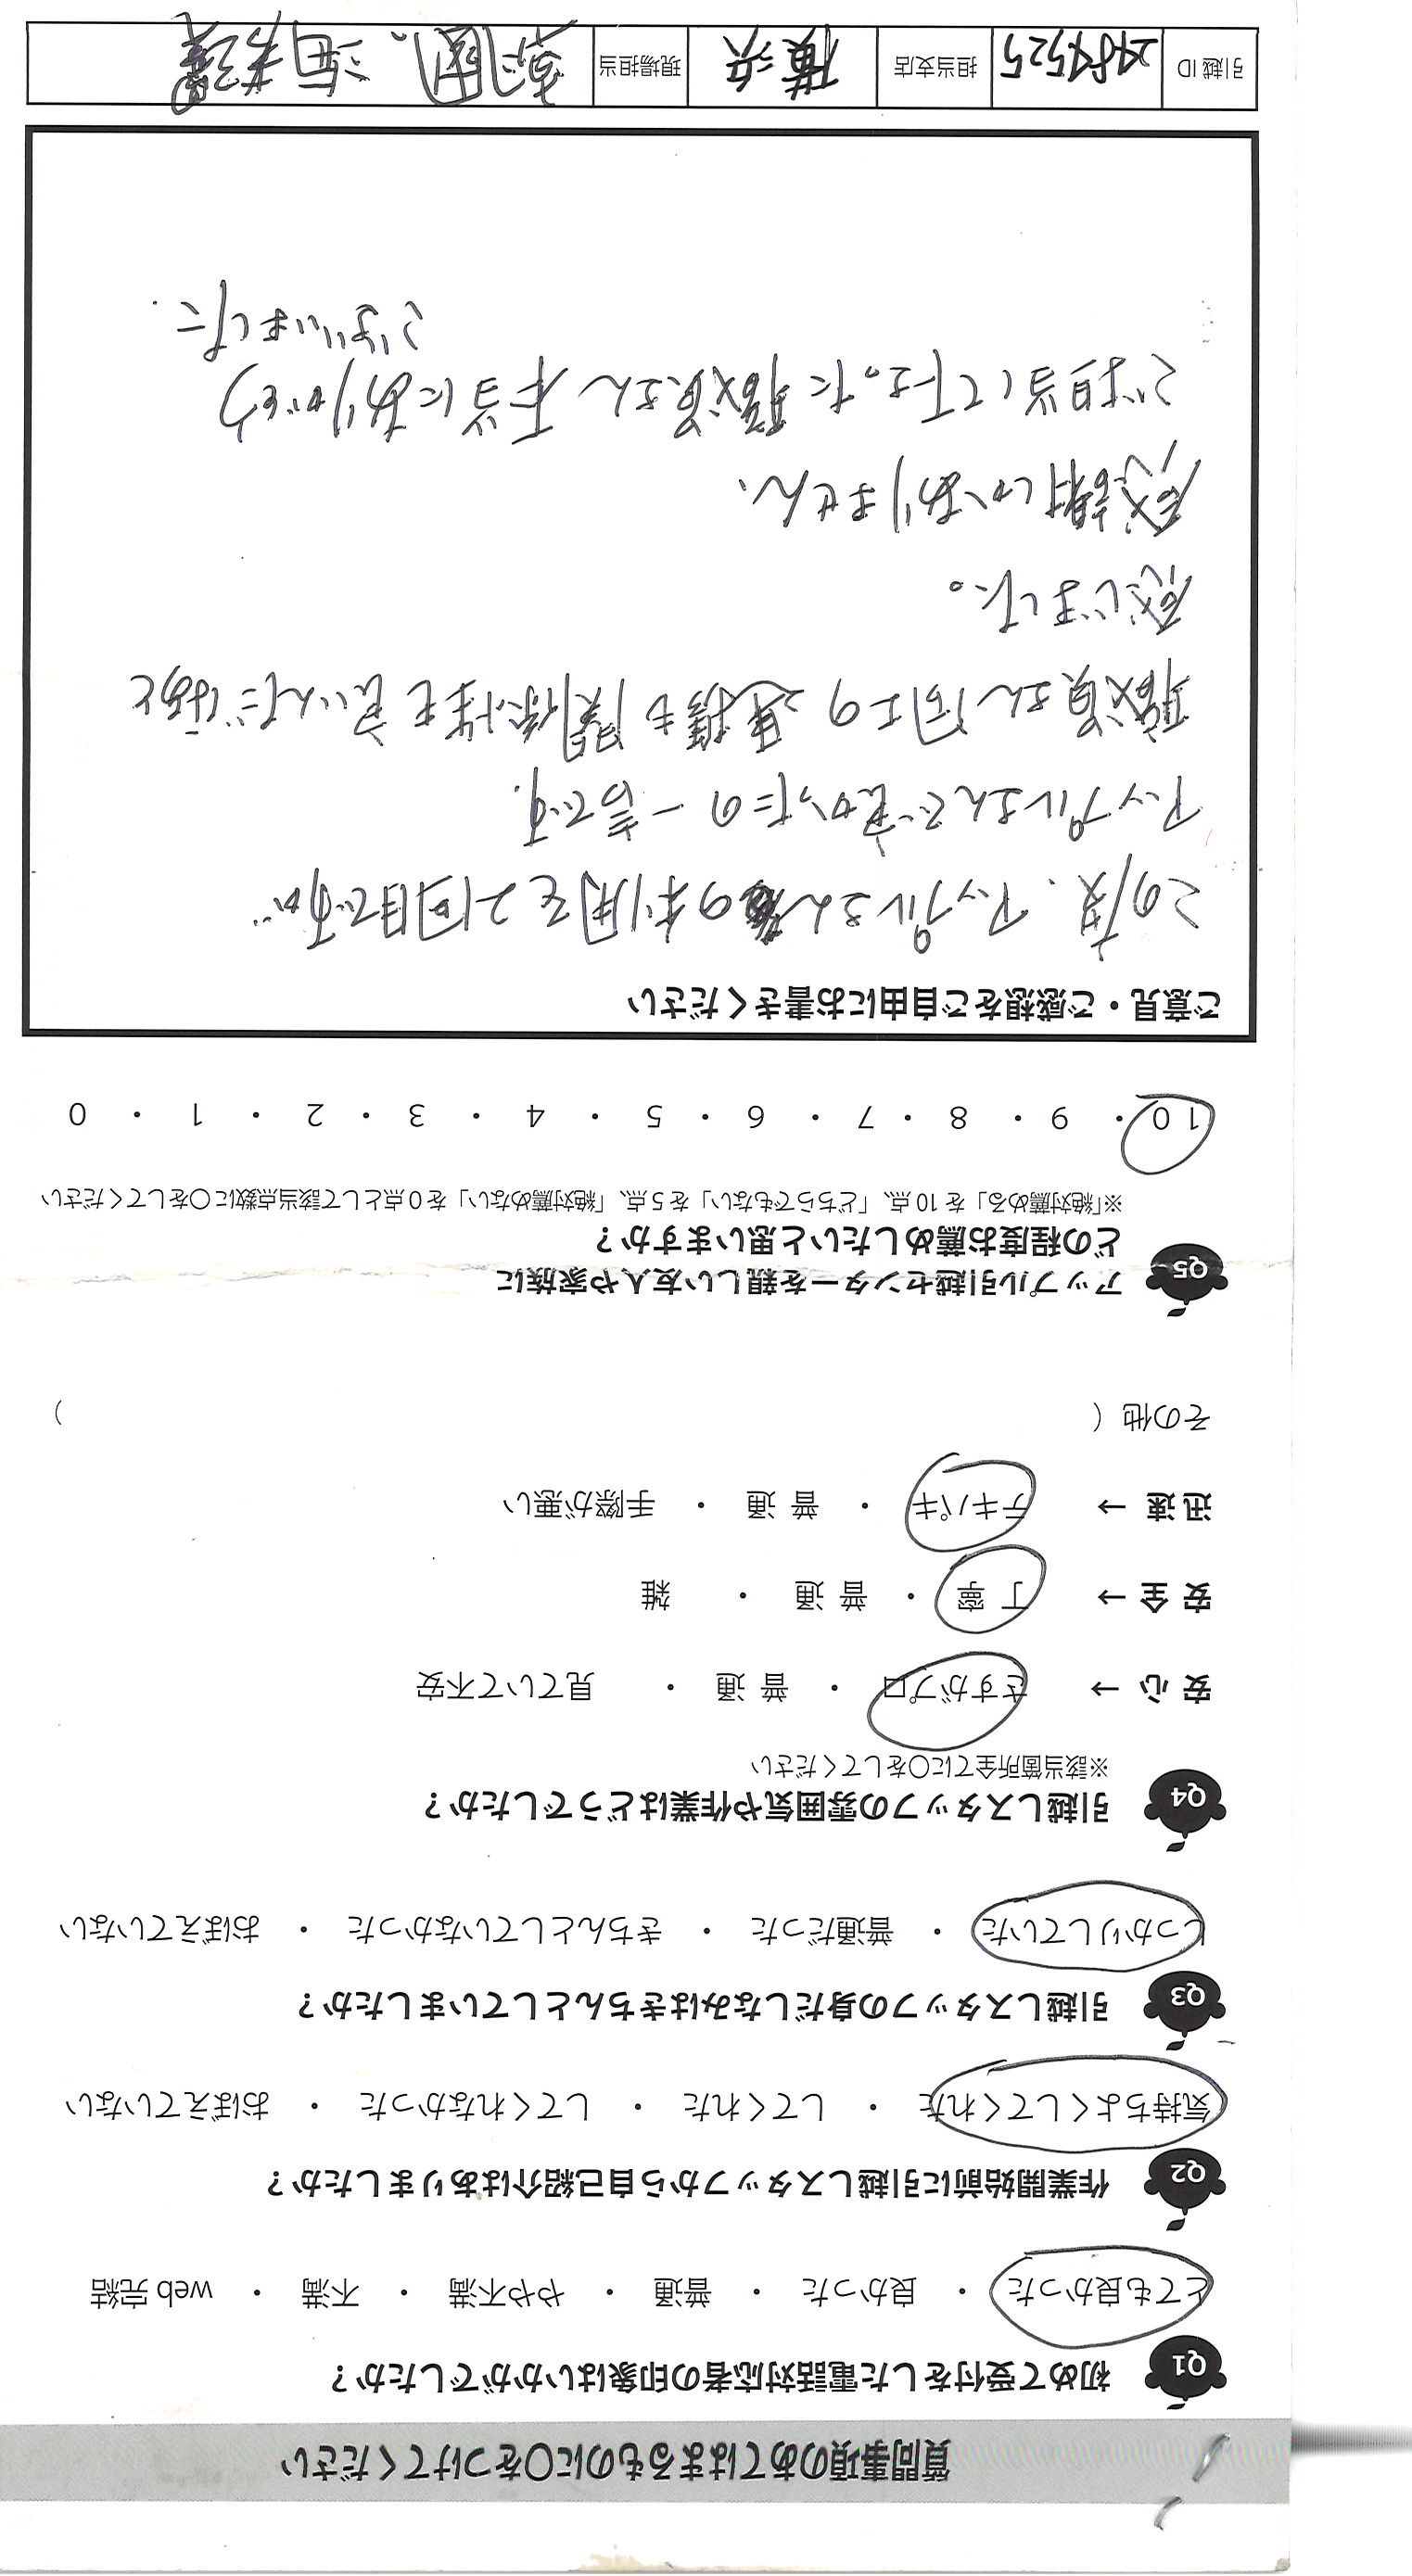 質問事項のあてはまるものに〇をつけてください
Q1 初めて受付をした電話対応者の印象はいかがでしたか？
とても良かった ・ 良かった ・ 普通 ・ やや不満 ・ 不満 ・ web 完結
Q2 作業開始前に引越しスタッフから自己紹介はありましたか？
気持ちよくしてくれた ・ してくれた ・ してくれなかった ・ おぼえていない
Q3 引越しスタッフの身だしなみはきちんとしていましたか？
しっかりしていた ・ 普通だった ・ きちんとしていなかった ・ おぼえていない
Q4 引越しスタッフの雰囲気や作業はどうでしたか？
※該当箇所全てに〇をしてください
安心 → さすがプロ ・ 普通 ・ 見ていて不安
安全 → 丁寧 ・ 普通 ・ 雑
迅速 → テキパキ ・ 普通 ・ 手際が悪い
その他（ ）
Q5 アップル引越センターを親しい友人や家族に
どの程度お薦めしたいと思いますか？
※「絶対薦める」を 10 点、「どちらでもない」を 5 点、「絶対薦めない」を 0 点として該当点数に〇をしてください
10 ・ 9 ・ 8 ・ 7 ・ 6 ・ 5 ・ 4 ・ 3 ・ 2 ・ 1 ・ 0
ご意見・ご感想をご自由にお書きください
この度、アップルさんの利用を2回目ですが…
アップルさんで良かったの一言です。
職員さん同士の連携も関係性も良いんだなぁと
感じました。
感謝しかありません、
ご担当して下さった職員さん 本当にありがとう
ございました.
引越 ID 2484525 担当支店 横浜 現場担当